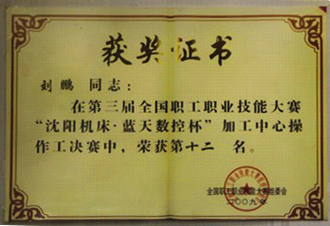 获奖证书
刘鹏 同志：
在第三届全国职工职业技能大赛
“沈阳机床·蓝天数控杯”加工中心操
作工决赛中，荣获第十二 名。
全国职工职业技能大赛组委会
二〇〇九年